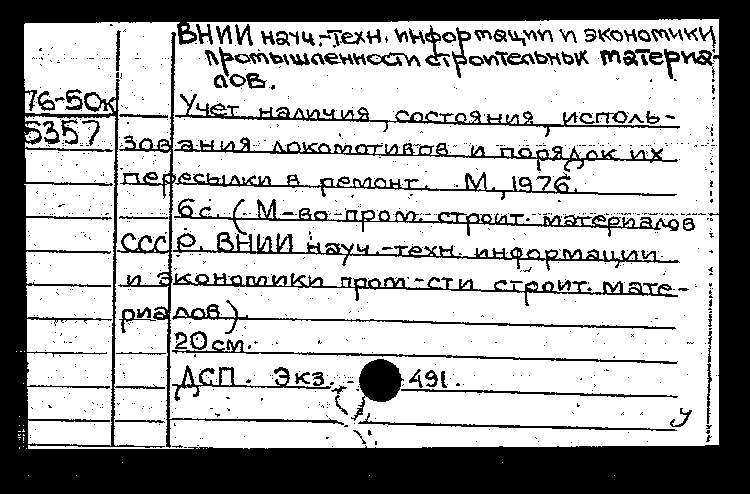 ВНИИ науч.-техн. информации и экономики
промышленности строительных материа-
лов.
76-50к
5357
Учет наличия, состояния, исполь-
зования локомотивов и порядок их
пересылки в ремонт. М., 1976.
6с. (М-во пром. строит. материалов
СССР. ВНИИ науч.-техн. информации
и экономики пром-сти строит. мате-
риалов).
20см.
ДСП. Экз. 491.
У